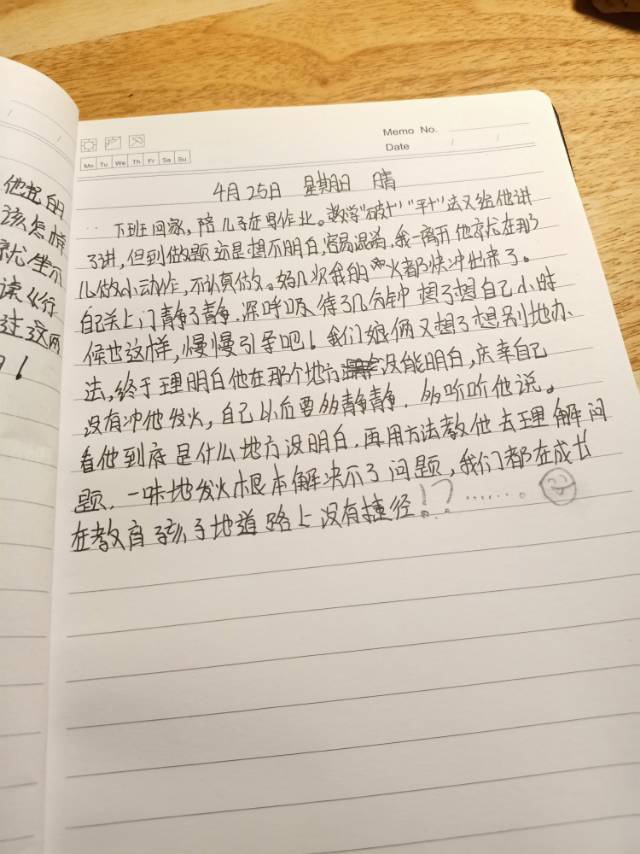 Memo No.
Date
Mo Tu We Th Fr Sa Su
他把自
该怎样
就坐不
读《行
过这两
!
4月25日 星期日 晴
下班回家,陪儿子在写作业。数学"破十""平十"法又给他讲
了讲,但到做题还是想不明白,容易混淆,我一离开他就在那
儿做小动作,不认真做。好几次我的"火都快冲出来了。
自己关上门静了静,深呼吸,待了几分钟想了想自己小时
候也这样,慢慢引导吧!我们娘俩又想了想别地办
法,终于理明白他在那个地方没能明白,庆幸自己
没有冲他发火,自己以后要多静静,多听听他说。
看他到底是什么地方没明白,再用方法教他去理解问
题,一味地发火根本解决不了问题,我们都在成长
在教育孩子地道路上没有捷径!?……。